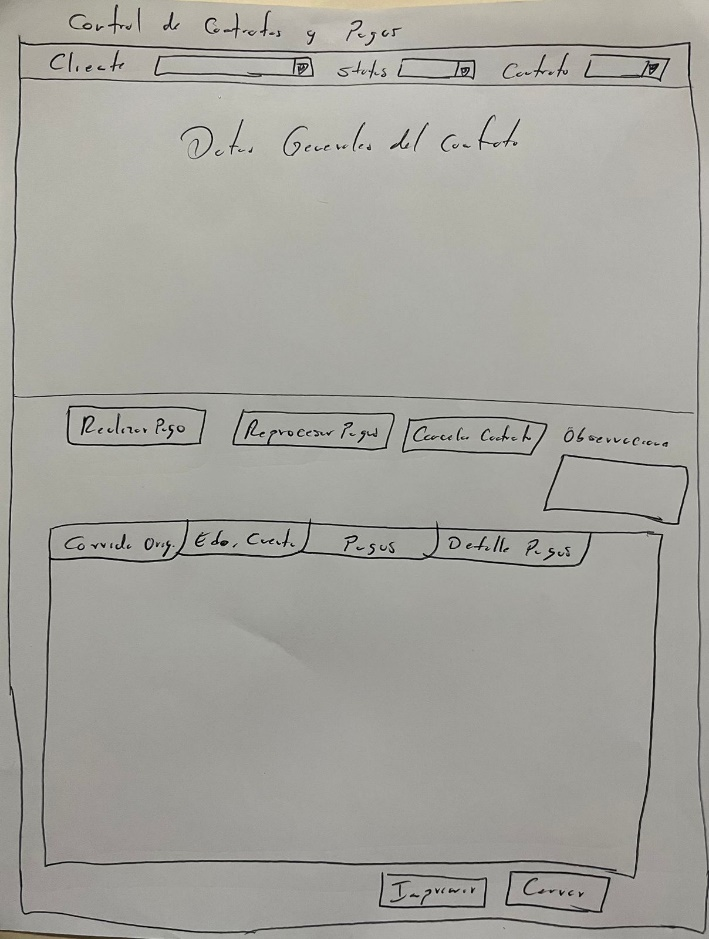 Control de Contratos y Pagos
Cliente Status Contrato
Datos Generales del Contrato
Realizar Pago Reprocesar Pagos Cancelar Contrato Observaciones
Corrida Orig. Edo. Cuenta Pagos Detalle Pagos
Imprimir Cerrar